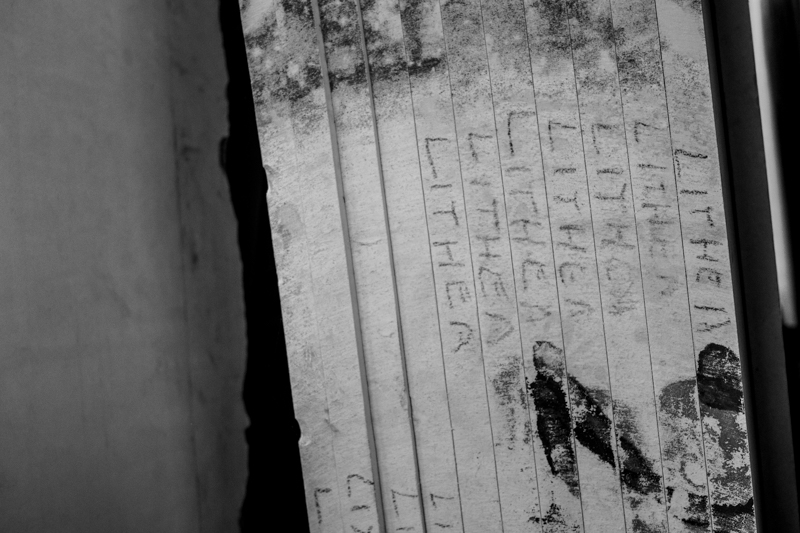 LITHEA
LITHEA
LITHEA
LITHEA
LITHEA
LITHEA
LITHEA
LI
LI
LI
L